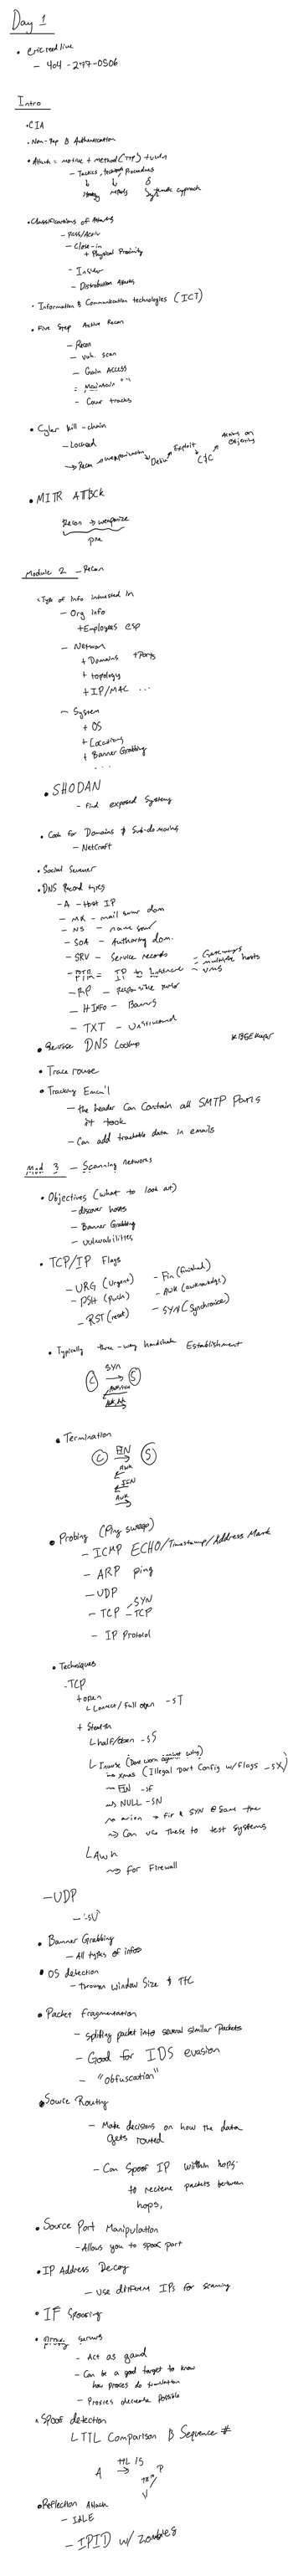 Day 1
• ericreed live
- 404-277-0506
Intro
• CIA
• Non-Rep & Authentication
• Attack = motive + method (TTP) + vuln
- Tactics, techniques, Procedures
Strategy methods Systematic approach
• Classifications of Attacks
- Pass/Activ
- Close-in
+ Physical Proximity
- Insider
- Distribution Attacks
• Information & Communication technologies (ICT)
• Five Step Active Recon
- Recon
- vuln. scan
- Gain Access
- Maintain " "
- Cover tracks
• Cyber kill-chain
- Lockeed
→ Recon → weaponization → Deliv → Exploit → C&C → Actions on Objectives
• MITR ATTBCK
Recon → weaponize
pre
Module 2 - Recon
• Type of Info interested in
- Org info
+ Employees esp
- Network
+ Domains + Ports
+ topology
+ IP/MAC ...
- System
+ OS
+ Locations
+ Banner Grabbing
...
• SHODAN
- Find exposed Systems
• Look for Domains & Sub-domains
- NetCraft
• Social
• DNS Record types
- A - Host IP
- MX - mail serv dom
- NS - name serv
- SOA - Authority dom.
- SRV - Service records
- PTR = IP to hostname
- RP - Responsible
- HINFO -
- TXT - Unstructured
- Gateways
- multiple hosts
- VMS
• Reverse DNS Lookup
• Trace route
• Tracking Email
- the header can contain all SMTP Paths
it took
- Can add trackable data in emails
Mod 3 - Scanning networks
• Objectives (what to look at)
- discover hosts
- Banner Grabbing
- Vulnerabilities
• TCP/IP Flags
- URG (urgent) - Fin (finished)
- PSH (push) - Awk (acknowledge)
- RST (reset) - SYN (Synchronize)
• Typically three-way handshake Establishment
SYN
C → S
• Termination
FIN
C → S
AWK
FIN
AWK
• Probing (Ping sweep)
- ICMP ECHO/Timestamp/Address Mask
- ARP Ping
- UDP
- TCP - SYN
- TCP
- IP Protocol
• Techniques
- TCP
+ open
↳ Connect/Full open -sT
+ Stealth
↳ half/open -sS
↳ Inverse (Dont work against wing)
→ xmas (Illegal Port Config w/flags -sX)
→ FIN -sF
→ NULL -SN
→ → Fin & SYN @ Same time
→ Can use These to test systems
↳ Awk
→ for Firewall
- UDP
- -sU
• Banner Grabbing
- All types of infos
• OS detection
- through window Size & TTL
• Packet fragmentation
- splitting packet into several similar Packets
- Good for IDS evasion
- "obfuscation"
• Source Routing
- Make decisions on how the data
gets routed
- Can Spoof IP within hops
to recieve packets between
hops,
• Source Port Manipulation
- Allows you to spoof port
• IP Address Decoy
- use different IPs for scanning
• IP Spoofing
• Proxy Servers
- Act as
- Can be a good target to know
how proxies do translation
- Proxies possible
• Spoof detection
↳ TTL Comparison & Sequence #
TTL 15
A →
V
• Reflection Attack
- IDLE
- IPID w/ zombies